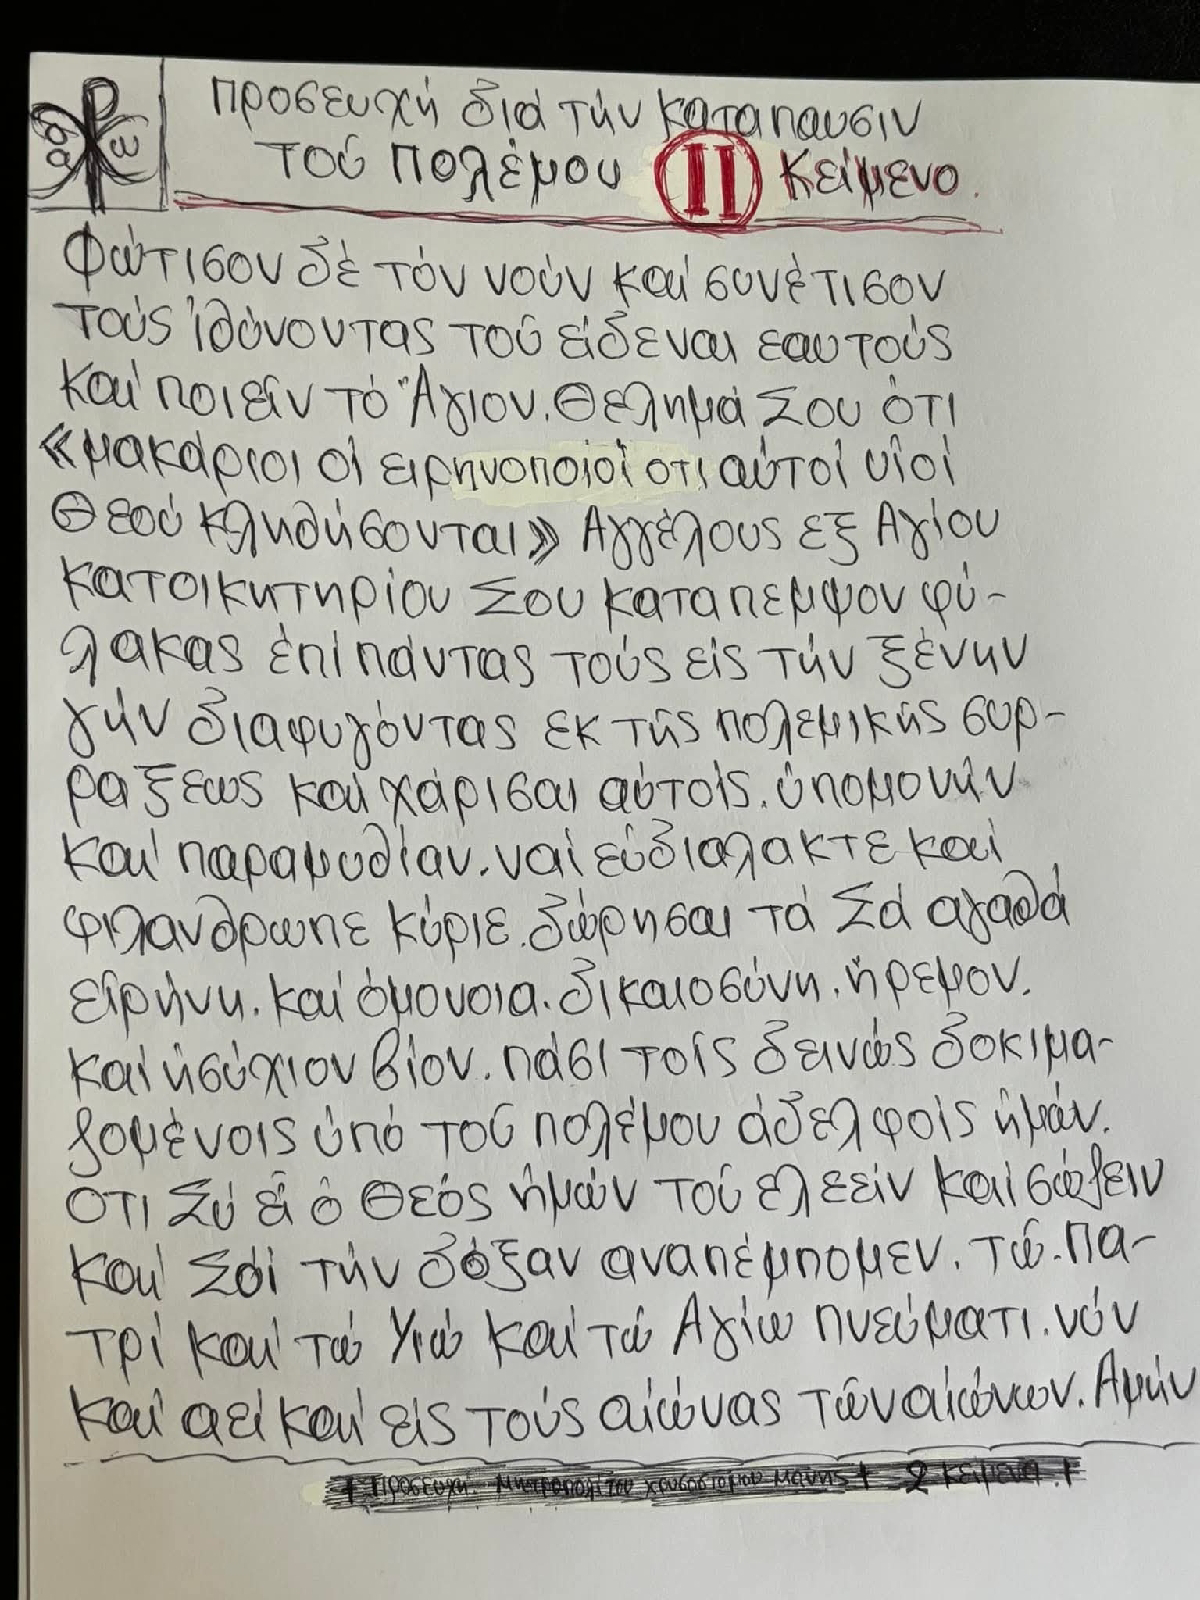 Προσευχή διά τήν καταπαυσιν
τού Πολέμου II Κείμενο.
Φώτισον δέ τόν νούν καί συνέτισον
τούς ἰθύνοντας τού είδεναι εαυτούς
καί ποιείν τό Ἅγιον. Θελημά Σου ότι
«μακάριοι οί ειρηνοποιοί οτι αύτοί υίοί
Θεού κληθήσονται» Αγγέλους εξ Αγίου
κατοικητηρίου Σου καταπεμψον φύ-
λακας έπί πάντας τούς είς τήν ξένην
γήν διαφυγόντας εκ τής πολεμικής συρ-
ραξεως καί χάρισαι αύτοίς. ύπομονήν
καί παραμυθίαν. ναί εύδιαλακτε καί
φιλανθρωπε κύριε. δώρησαι τά Σά αγαθά
είρήνη. καί όμουοια. δικαιοσύνη. ήρεμον.
καί ήσύχιον βίον. πάσι τοίς δεινώς δοκιμα-
ζομένοις ύπό τού πολέμου άδελφοίς ήμάν.
ότι Σύ εί ό Θεός ήμών τού ελεείν καί σώζειν
καί Σοί τήν δόξαν αναπέμπομεν. τώ. Πα-
τρί καί τώ Υιώ καί τώ Αγίω πνεύματι. νύν
καί αεί καί είς τούς αίώνας τών αίώνων. Αμήν
+ Προσευχή. Μητροπολίτου χρυσοστομου Μάνης + 2 κείμενα. +